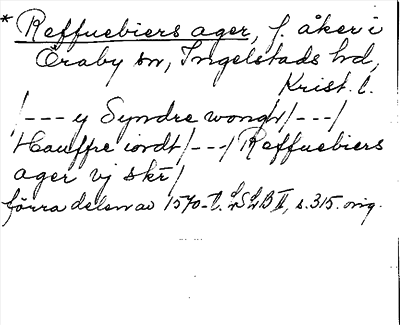 * Reffuebiers ager, f. åker i
Öraby sn, Ingelstads hd,
Krist. l.
/--- y Syndre wongh/---/
Hauffre iordt/---/Reffuebiers
ager vj skr/
förra delen av 1570-t. LSLB II, s. 315. orig.